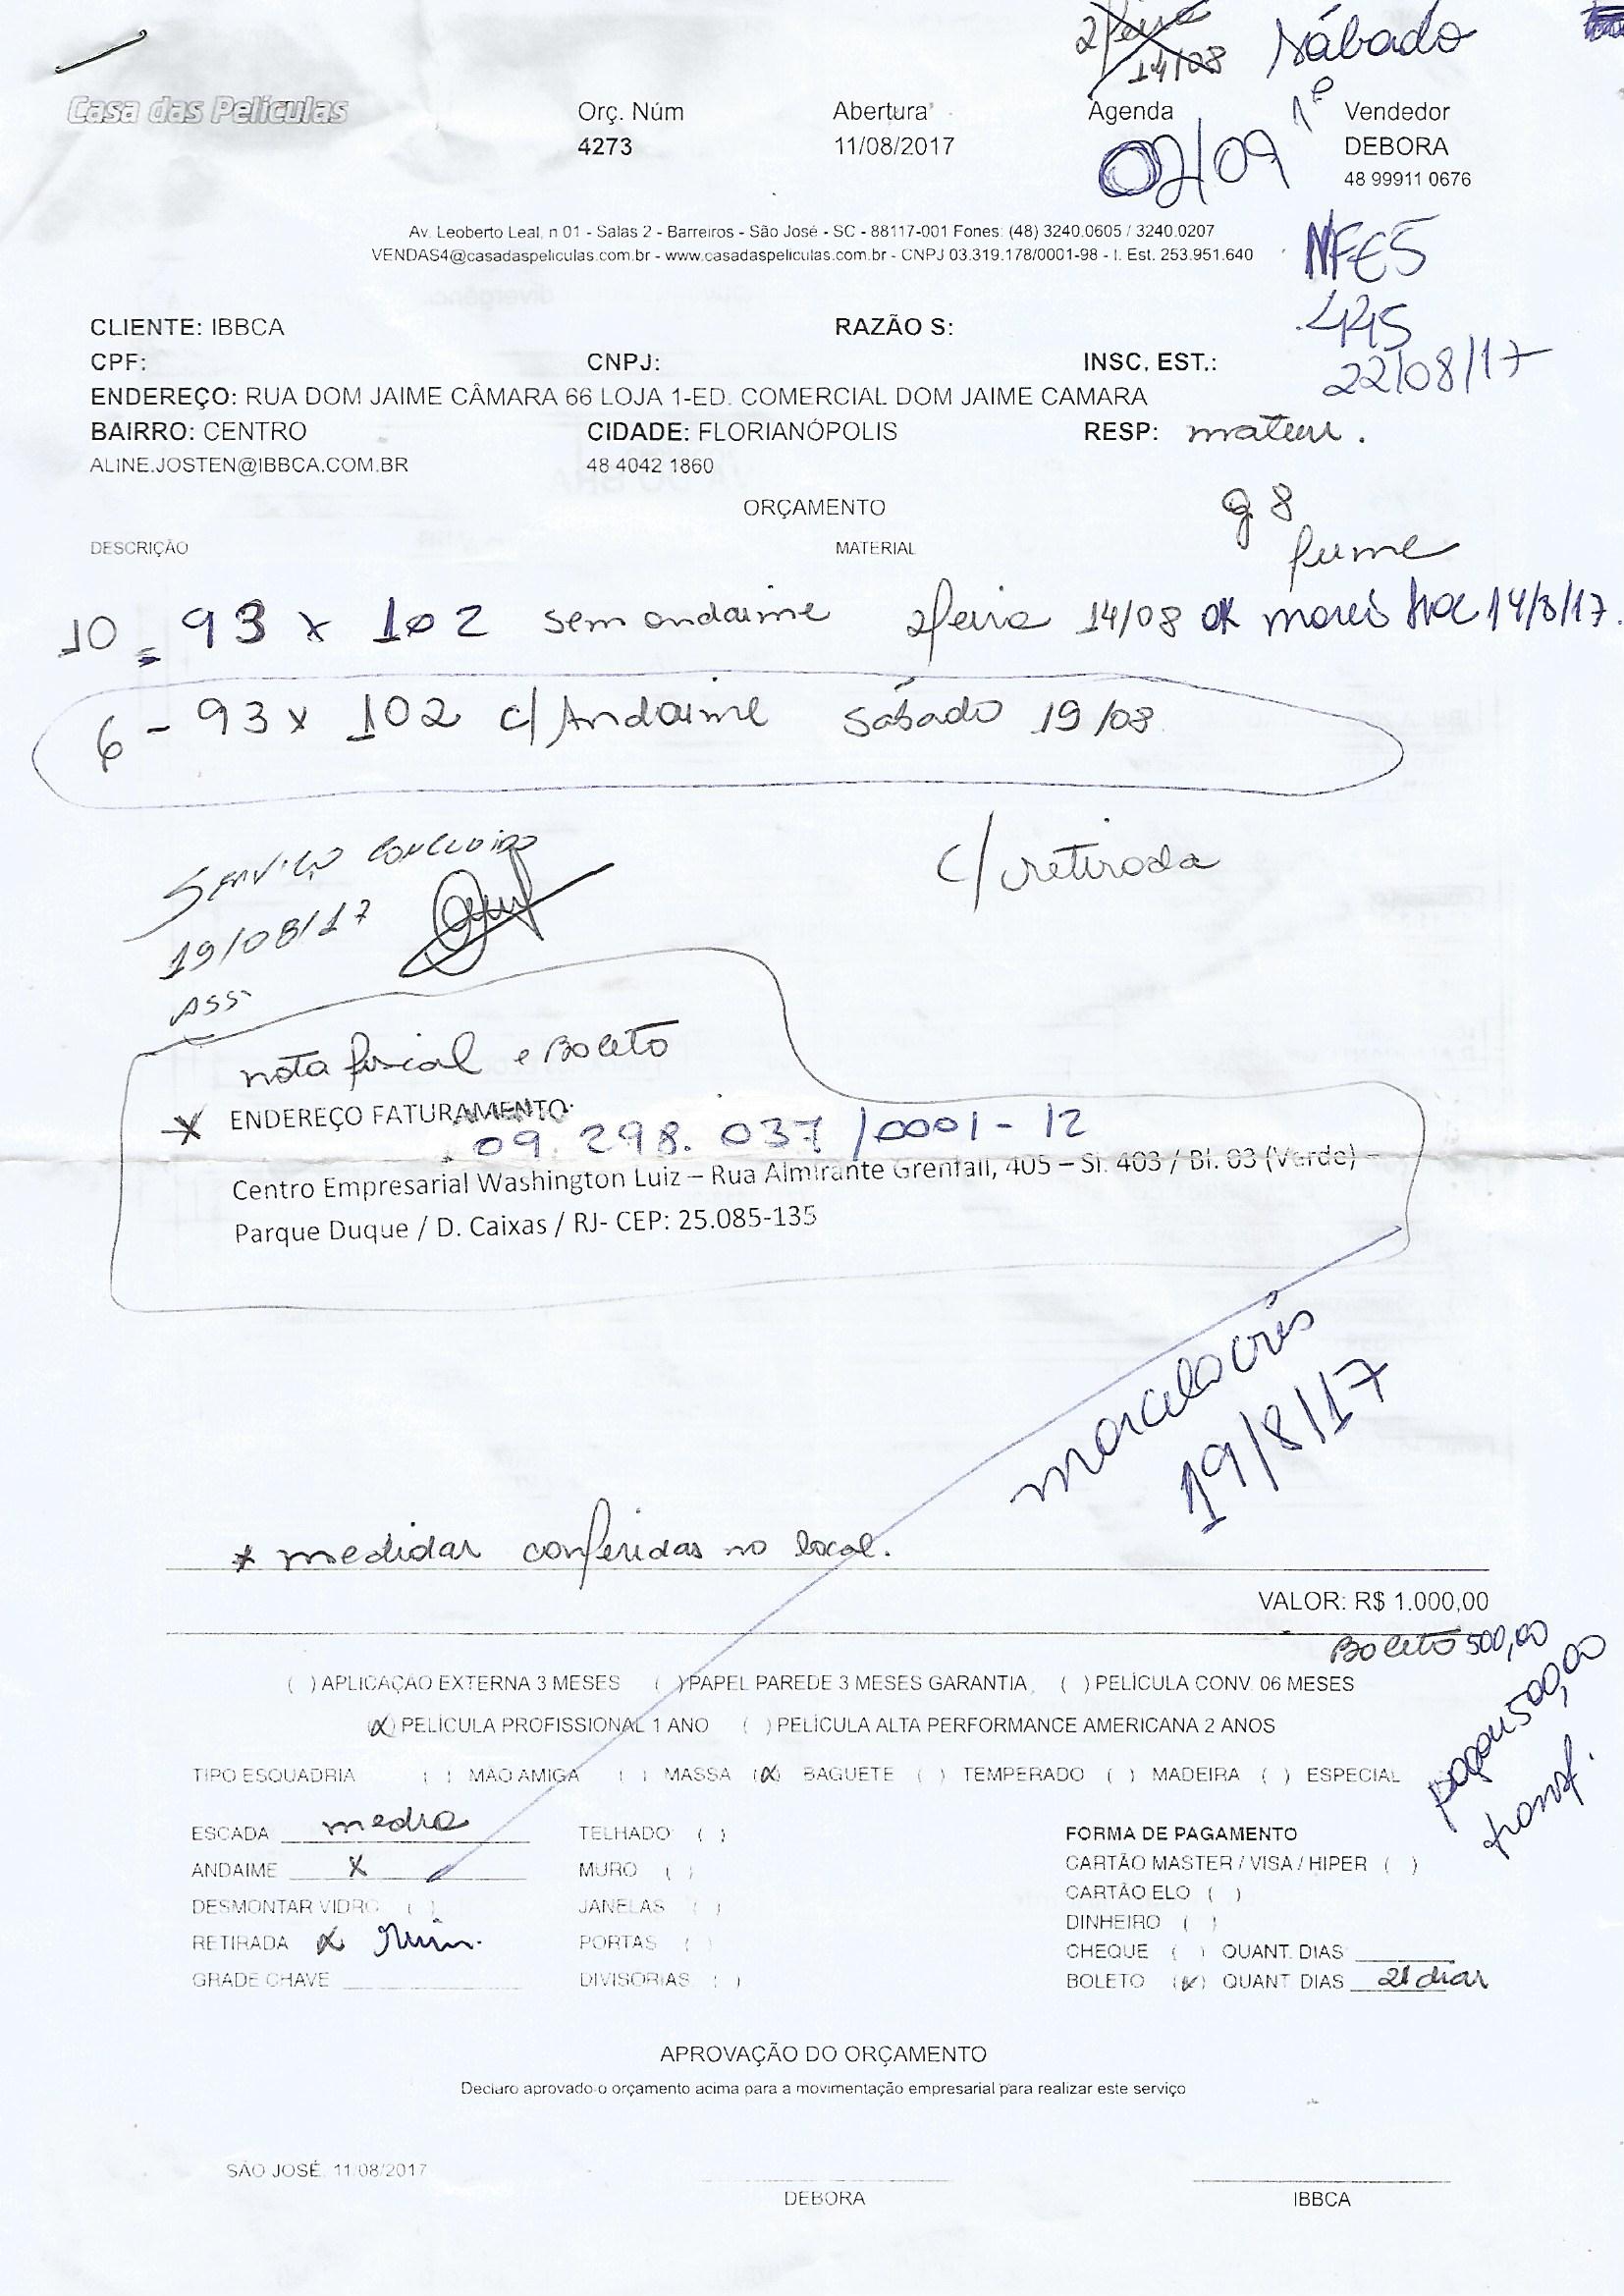 2ª feira
14/08
Sábado
Casa das Películas
Orç. Núm Abertura Agenda 1º Vendedor
4273 11/08/2017 02/09 DEBORA
48 99911 0676
Av. Leoberto Leal, n 01 - Salas 2 - Barreiros - São José - SC - 88117-001 Fones: (48) 3240.0605 / 3240.0207
VENDAS4@casadaspeliculas.com.br - www.casadaspeliculas.com.br - CNPJ 03.319.178/0001-98 - I. Est. 253.951.640
NFES
445
22/08/17
CLIENTE: IBBCA RAZÃO S:
CPF: CNPJ: INSC. EST.:
ENDEREÇO: RUA DOM JAIME CÂMARA 66 LOJA 1-ED. COMERCIAL DOM JAIME CAMARA
BAIRRO: CENTRO CIDADE: FLORIANÓPOLIS RESP:
ALINE.JOSTEN@IBBCA.COM.BR 48 4042 1860
ORÇAMENTO
g 8
fume
DESCRIÇÃO MATERIAL
10 - 93 x 102 sem andaime 2feira 14/08 OK 14/8/17.
6 - 93 x 102 c/ Andaime Sábado 19/08
c/ retirada
SERVIÇO CONCLUIDO
19/08/17
ASS
nota fiscal e Boleto
X ENDEREÇO FATURAMENTO:
09.298.037/0001-12
Centro Empresarial Washington Luiz – Rua Almirante Grenfall, 405 – Sl. 403 / Bl. 03 (Verde) –
Parque Duque / D. Caixas / RJ- CEP: 25.085-135
marcelo cris
19/8/17
* medidas conferidas no local.
VALOR: R$ 1.000,00
Boleto 500,00
pagou 500,00
transf.
( ) APLICAÇÃO EXTERNA 3 MESES ( ) PAPEL PAREDE 3 MESES GARANTIA ( ) PELÍCULA CONV. 06 MESES
(X) PELÍCULA PROFISSIONAL 1 ANO ( ) PELÍCULA ALTA PERFORMANCE AMERICANA 2 ANOS
TIPO ESQUADRIA ( ) MÃO AMIGA ( ) MASSA (X) BAGUETE ( ) TEMPERADO ( ) MADEIRA ( ) ESPECIAL
ESCADA media TELHADO ( ) FORMA DE PAGAMENTO
ANDAIME X MURO ( ) CARTÃO MASTER / VISA / HIPER ( )
CARTÃO ELO ( )
DESMONTAR VIDRO ( ) JANELAS ( )
DINHEIRO ( )
RETIRADA X PORTAS ( )
CHEQUE ( ) QUANT. DIAS
GRADE CHAVE DIVISORIAS ( ) BOLETO (X) QUANT DIAS 21 dias
APROVAÇÃO DO ORÇAMENTO
Declaro aprovado o orçamento acima para a movimentação empresarial para realizar este serviço
SÃO JOSÉ, 11/08/2017
DEBORA IBBCA